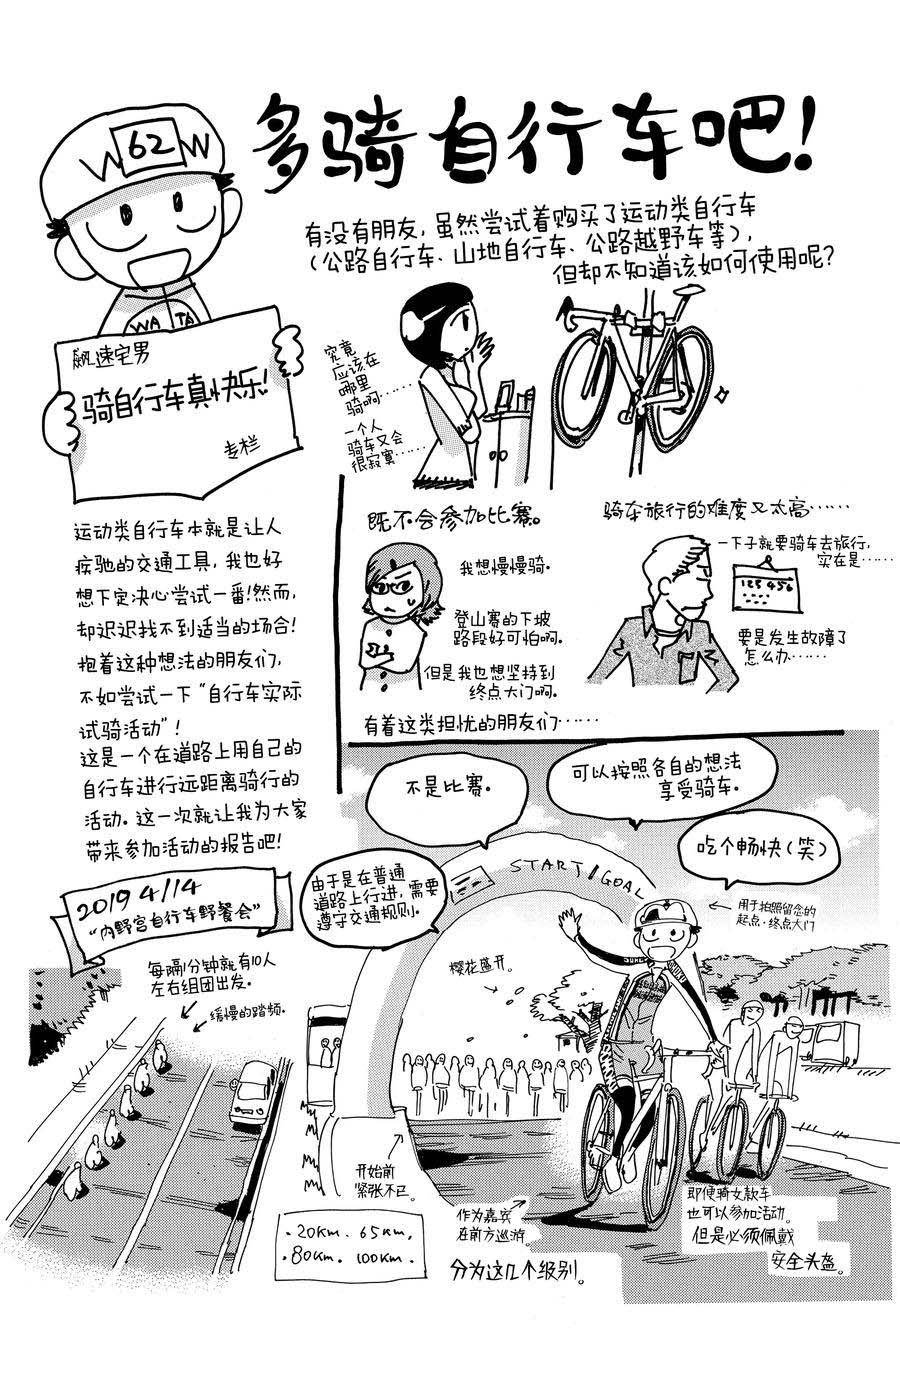 多骑自行车吧!
62
WA TA
飙速宅男
骑自行车真快乐!
专栏
有没有朋友,虽然尝试着购买了运动类自行车
(公路自行车、山地自行车、公路越野车等),
但却不知道该如何使用呢?
究竟
应该在
哪里
骑啊……
一个人
骑车又会
很寂寞……
运动类自行车本就是让人
疾驰的交通工具,我也好
想下定决心尝试一番!然而,
却迟迟找不到适当的场合!
抱着这种想法的朋友们,
不如尝试一下“自行车实际
试骑活动”!
这是一个在道路上用自己的
自行车进行远距离骑行的
活动。这一次就让我为大家
带来参加活动的报告吧!
既不会参加比赛。
我想慢慢骑。
登山赛的下坡
路段好可怕啊。
但是我也想坚持到
终点大门啊。
骑车旅行的难度又太高……
一下子就要骑车去旅行,
实在是……
123 456
要是发生故障了
怎么办……
有着这类担忧的朋友们……
不是比赛。
可以按照各自的想法
享受骑车。
吃个畅快(笑)
由于是在普通
道路上行进,需要
遵守交通规则。
START/GOAL
用于拍照留念的
起点·终点大门
2019 4/14
“内野宫自行车野餐会”
每隔1分钟就有10人
左右组团出发。
缓慢的踏频。
樱花盛开。
开始前
紧张不已。
作为嘉宾
在前方巡游。
即使骑女款车
也可以参加活动。
但是必须佩戴
安全头盔。
·20km. 65km.
·80km. 100km.
分为这几个级别。